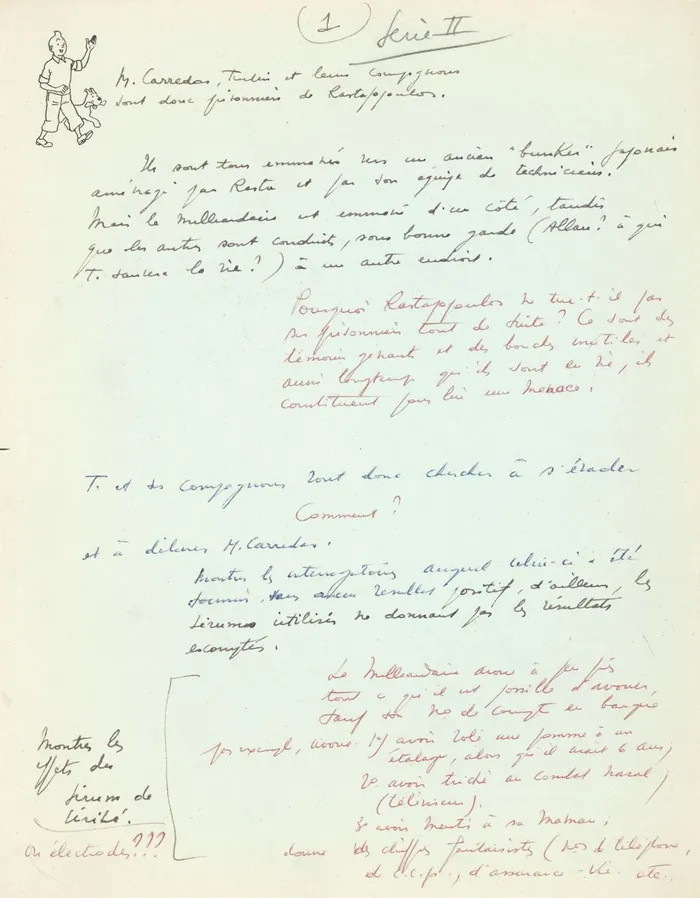 1 Serie II
M. Carredas, Tintin et leurs compagnons
sont donc prisonniers de Rastappoulos.
Ils sont tous emmenés vers un ancien "bunker" japonais
aménagé par Rasta et par son équipe de techniciens.
Mais le milliardaire est emmené d'un côté, tandis
que les autres sont conduits, sous bonne garde (Allan? à qui
T. sauvera la vie?) à un autre endroit.
Pourquoi Rastappoulos ne tue-t-il pas
ses prisonniers tout de suite? Ce sont des
témoins gênants et des bouches inutiles et
aussi longtemps qu'ils sont en vie, ils
constituent pour lui une menace.
T. et ses compagnons vont donc chercher à s'évader
Comment?
et à délivrer M. Carredas.
Montrer les interrogatoires auquel celui-ci a été
soumis sans aucun résultat positif, d'ailleurs, les
sérums utilisés ne donnant pas les résultats
escomptés.
Le Milliardaire avoue à peu près
tout ce qu'il est possible d'avouer,
sauf son No de compte en banque
par exemple, avoue 1º avoir volé une pomme à un
étalage, alors qu'il avait 6 ans,
2º avoir triché au combat naval
(téléviseur).
3º avoir menti à sa Maman;
donne des chiffres fantaisistes (Nos de téléphone,
de C.C.P., d'assurance-vie. etc..
Montrer les
effets des
sérum de
vérité.
ou électrodes???